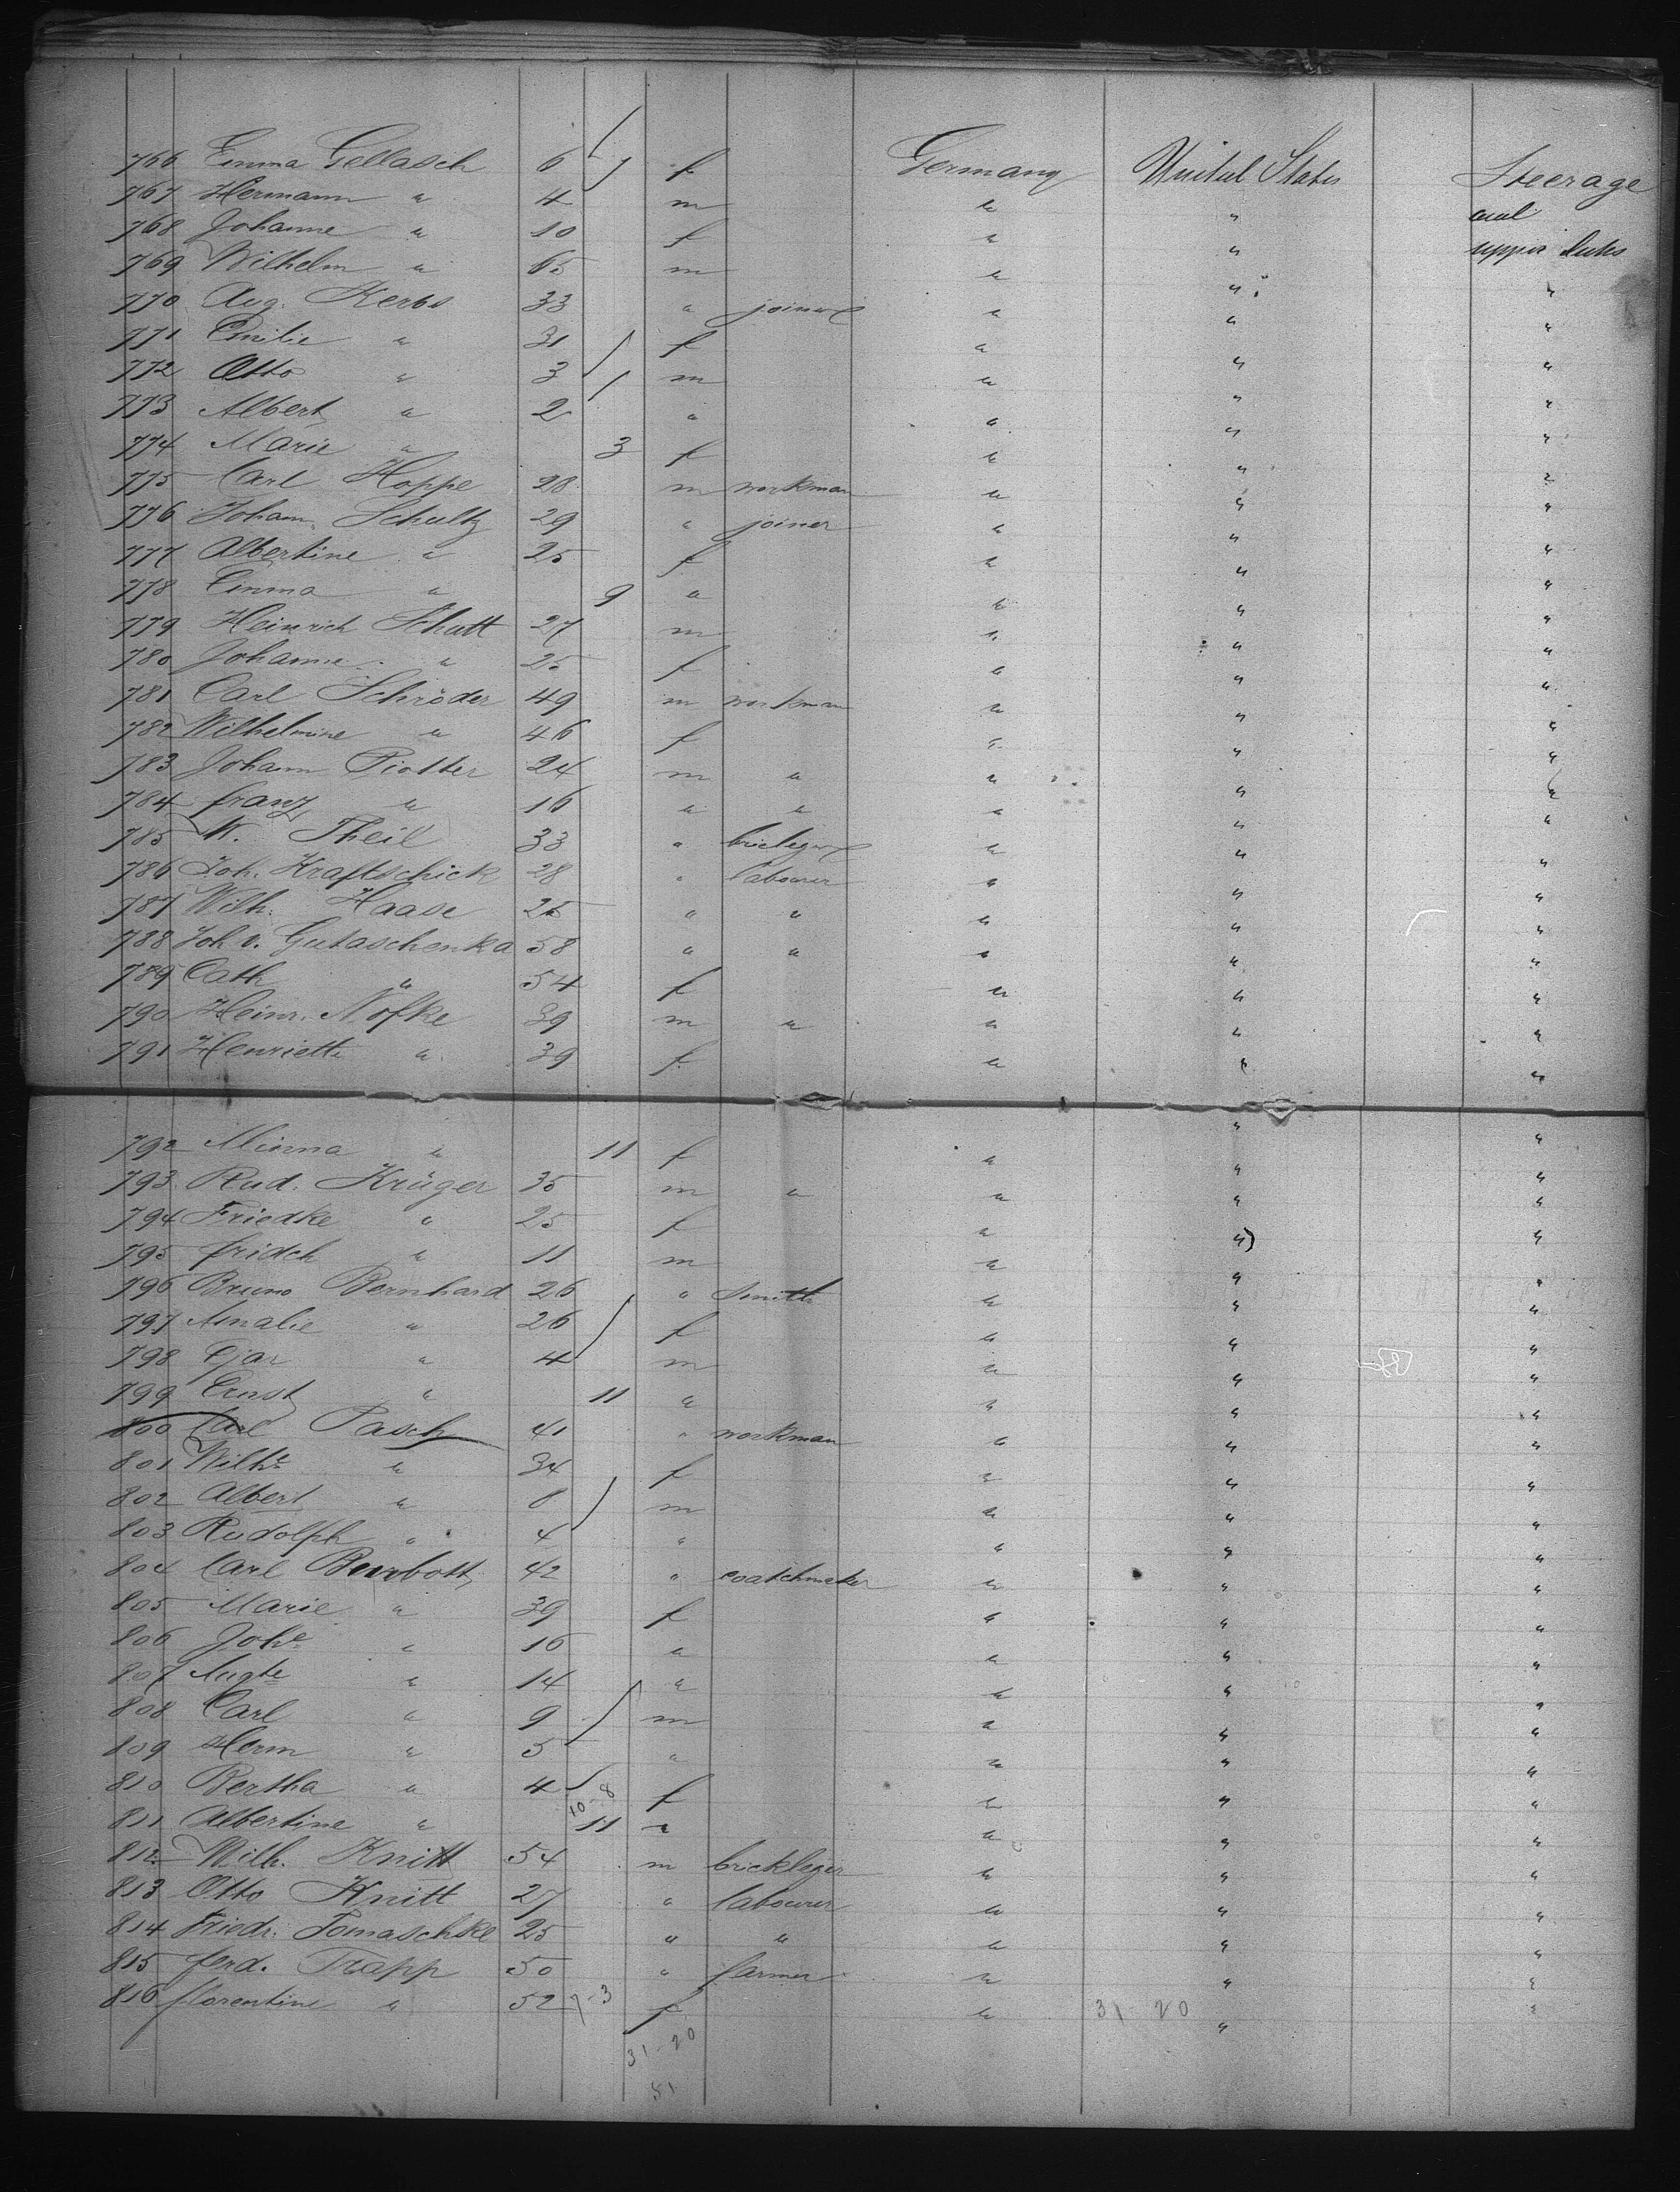 766 Emma Gellasch 6 f Germany United States Steerage
767 Hermann " 4 m " " and
768 Johanne " 10 f " " upper decks
769 Wilhelm " 65 m " " "
770 Aug. Kerbs 33 " joiner " " "
771 Emilie " 31 f " " "
772 Otto " 3 m " " "
773 Albert " 2 " " " "
774 Marie " 3 f " " "
775 Carl Hoppe 28 m workman " " "
776 Johann Schultz 29 " joiner " " "
777 Albertine " 25 f " " "
778 Emma " 9 " " " "
779 Heinrich Schutt 27 m " " "
780 Johanne " 25 f " " "
781 Carl Schröder 49 m workman " " "
782 Wilhelmine " 46 f " " "
783 Johann Piotter 24 m " " " "
784 franz " 16 " " " " "
785 W. Theil 33 " " " "
786 Joh. Kraftschick 28 " labourer " " "
787 Wilh. Haase 25 " " " " "
788 Joh v. Gutaschenka 58 " " " " "
789 Cath " 54 f " " "
790 Heinr. Nofke 39 m " " " "
791 Henriette " 39 f " " "
792 Minna " 11 f " " "
793 Rud. Krüger 35 m " " " "
794 Friedke " 25 f " " "
795 fridch " 11 m " " "
796 Bruno Bernhard 26 " Smith " " "
797 Amalie " 26 f " " "
798 " 4 m " " "
799 Ernst " 11 " " " "
800 Carl Pasch 41 " workman " " "
801 Wilhe " 34 f " " "
802 Albert " 8 m " " "
803 Rudolph " 4 " " " "
804 Carl 42 " coatchmaker " " "
805 Marie " 39 f " " "
806 Johe " 16 " " " "
807 Augte " 14 " " " "
808 Carl " 9 m " " "
809 Herm " 5 " " " "
810 Bertha " 4 f " " "
10-8
811 Albertine " 11 " " " "
812 Wilh. Knitt 54 m brickleger " " "
813 Otto Knitt 27 " labourer " " "
814 Friedr. Tomaschke 25 " " " " "
815 ferd. Trapp 50 " farmer " " "
816 florentine " 52 7-3 f " " "
31-20
31-20
51